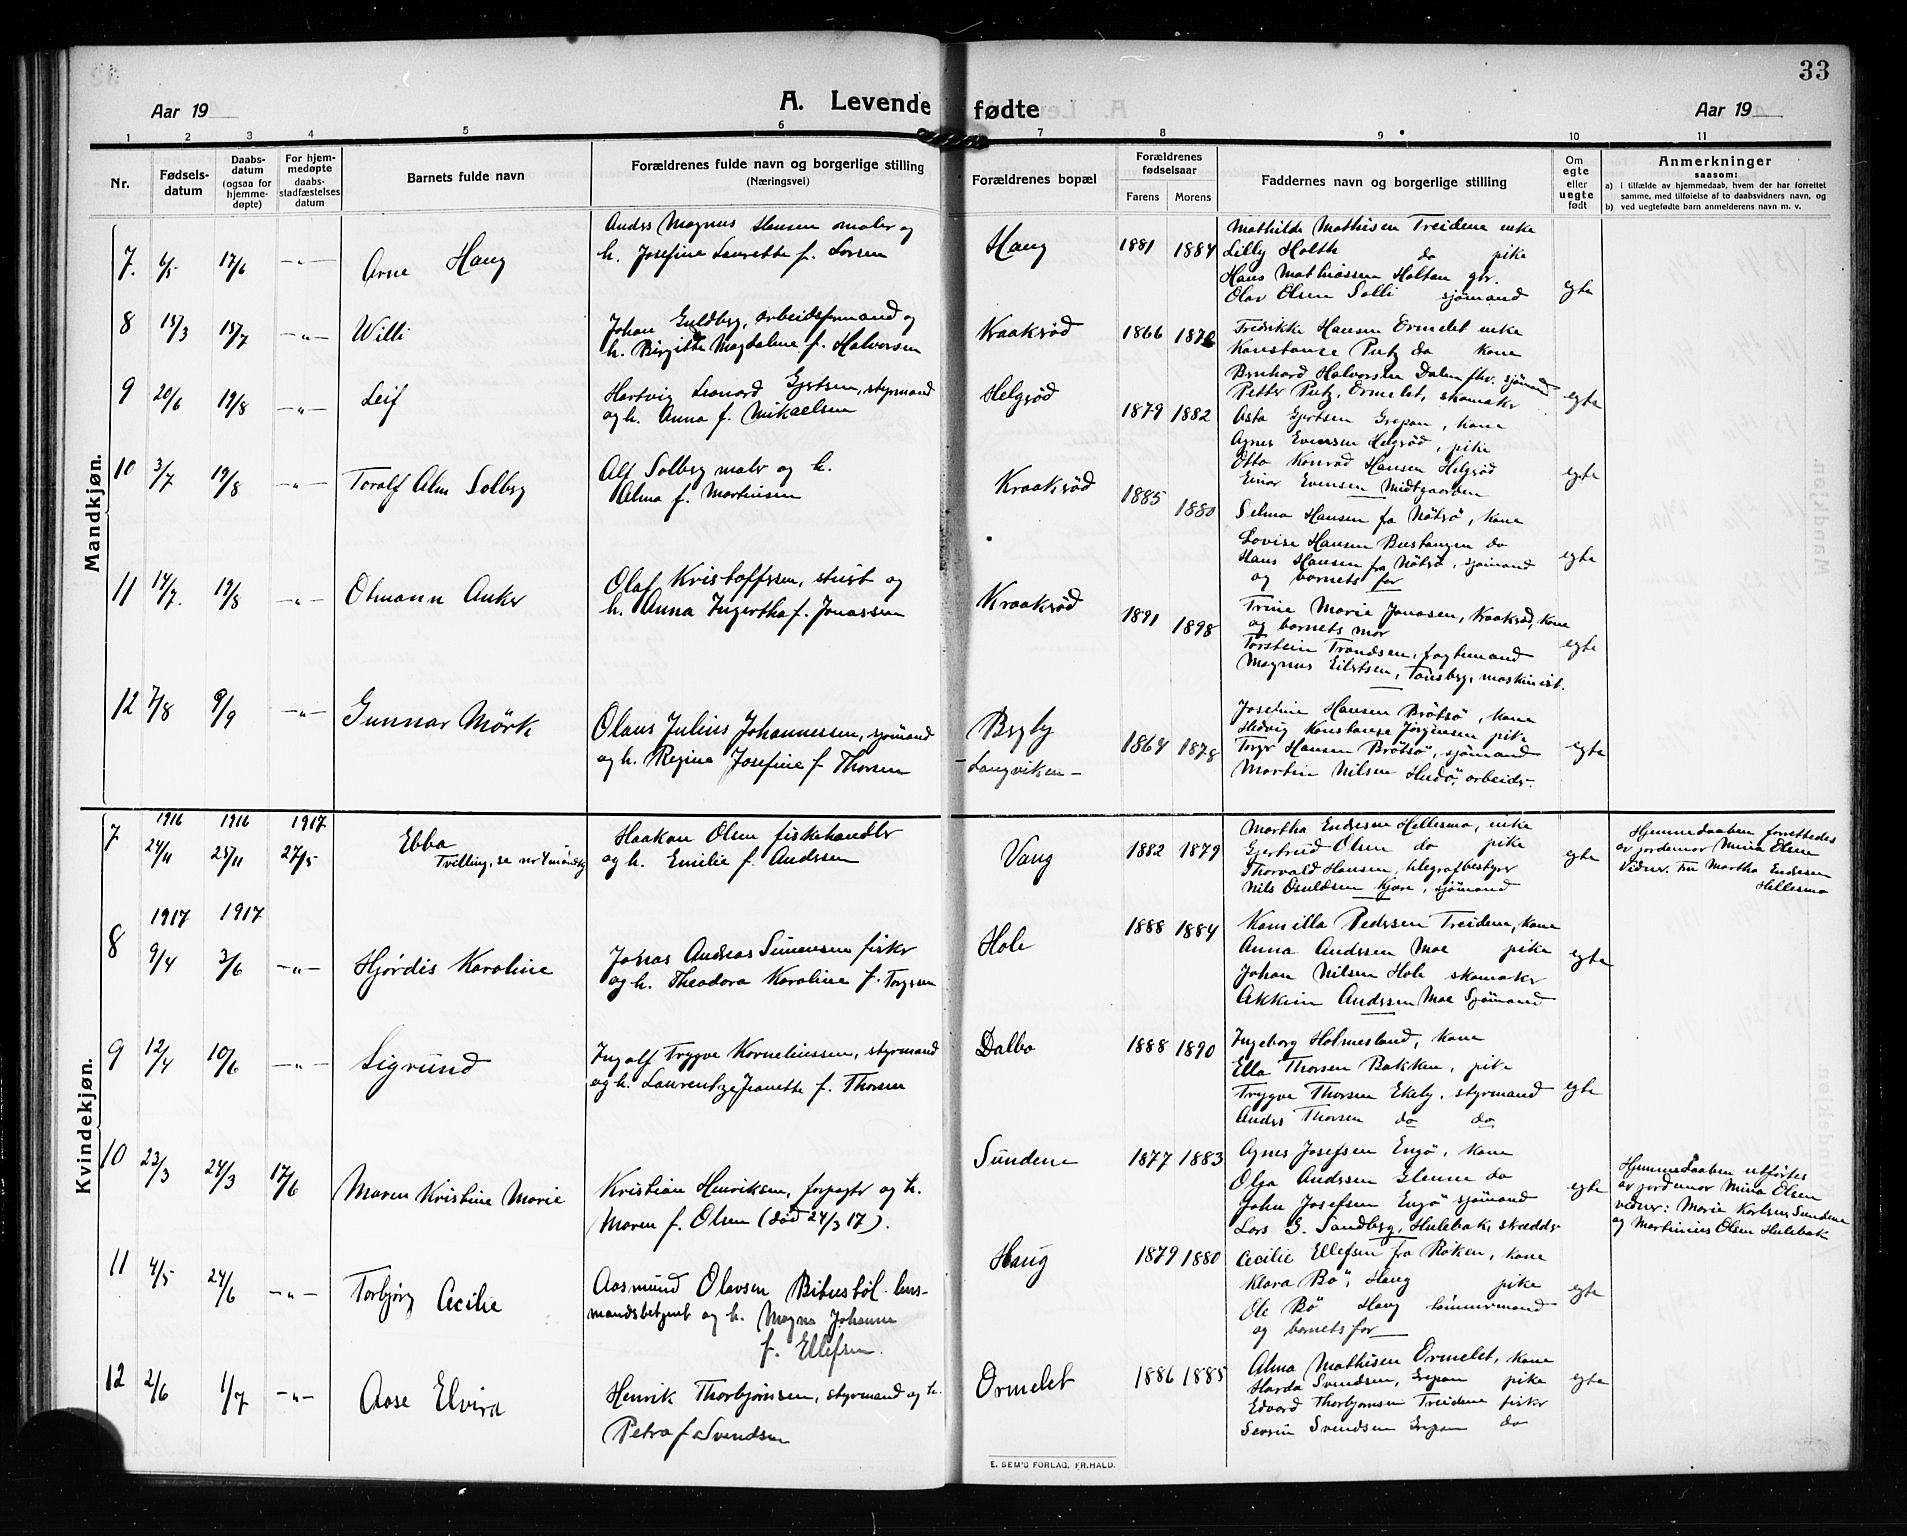 33
Aar 19
A. Levende fødte
Aar 19
1 2 3 4 5 6 7 8 9 10 11
Nr.
Fødsels-
datum
Daabs-
datum
(ogsaa for
hjemme-
døpte)
For hjem-
medøpte
daabs-
stadfæstelses
datum
Barnets fulde navn
Forældrenes fulde navn og borgerlige stilling
(Næringsvei)
Forældrenes bopæl
Forældrenes
fødselsaar
Farens Morens
Faddernes navn og borgerlige stilling
Om
egte
eller
uegte
født
Anmerkninger
saasom:
a) i tilfælde av hjemmedaab, hvem der har forrettet
samme, med tilføielse av to daabsvidners navn, og
b) ved uegtefødte barn anmelderens navn m. v.
Mandkjøn.
7. 6/5 17/6 -"- Arne Haug
Anders Magnus Hansen maler og
h. Josefine Laurette f. Larsen
Haug 1881 1884
Mathilde Mathisen Treidene enke
Lilly Holth do pike
Hans Mathiassen Holtan gbr.
Olav Olsen Solli sjømand
egte
8 15/3 15/7 -"- Willi
Johan Guldbrg, arbeidsformand og
h. Birgitte Magdalene f. Halvorsen
Kraakrød 1866
Fredrikke Hansen Ormelet enke
Konstanse Putz do kone
Bernhard Halvorsen Dalen fhv. sjømand
Petter Putz, Ormelet, skomaker
egte
9 20/6 19/8 -"- Leif
Hartvig Leonard Gjertsen, styrmand
og h. Anna f. Mikaelsen
Helgrød 1879 1882
Asta Gjertsen Grepan, kone
Agnes Evensen Helgrød, pike
Otto Konrad Hansen Helgrød
Einar Evensen Midtgaarden
egte
10 3/7 19/8 -"- Toralf Alm Solberg
Alf Solberg maler og h.
Alma f. Martinsen
Kraakrød 1885 1880
Selma Hansen fra Nøtrø, kone
Lovise Hansen Bustangen do
Hans Hansen fra Nøtrø, sjømand
og barnets far
egte
11 14/7. 19/8 -"- Otmann Anker
Olaf Kristoffersen, stuert og
h. Anna Ingertha f. Jonassen
Kraakrød 1891 1898
Trine Marie Jonasen, Kraakrød, kone
og barnets mor
Torstein Trondsen, fragtemand
Magnus Eilertsen, Tønsberg, maskinist.
egte
12 7/8 9/9 -"- Gunnar Mørk
Olaus Julius Johannessen, sjømand
og h. Regine Josefine f Thorsen
Brgby
Langviken - 1864 1878
Josefine Hansen Brøtsø, kone
Hedvig Konstanse Jørgensen pike
Torger Hansen Brøtsø, sjømand
Martin Nilsen Hudø, arbeids-
egte
Kvindekjøn.
7 1916 24/11 1916 25/11 1917 27/5 Ebba
Tvilling, se nr 4 mandkj
Haakon Olsen fiskehandler
og h. Emilie f. Andersen
Vang 1882 1879
Martha Endresen Hellesmo, enke
Gjertrud Olsen do pike
Thorvald Hansen, telegrafbestyrer
Nils Osuldsen Kjære, sjømand
egte
Hjemmedaaben forrettedes
av jordemor Mina Olsen
Vidner. Fru Martha Endresen
Hellesmo
8 1917 9/4 1917 3/6 -"- Hjørdis Karoline
Jonas Andreas Simensen fisker
og h. Theodora Karoline f. Torgersen
Hole 1888 1884
Kamilla Pedersen Treidene, kone
Anna Andersen Moe pike
Johan Nilsen Hole skomaker
Akkim Andersen Moe Sjømand
egte
9 12/4 10/6 -"- Sigrund
Ingolf Trygve Korneliussen, styrmand
og h. Laurentze Jeanette f. Thorsen
Dalbo 1888 1890
Ingeborg Holmesland, kone
Ella Thorsen Bakken, pike
Trygve Thorsen Ekely, styrmand
Anders Thorsen do do
egte
10 23/3 24/3 17/6 Maren Kristine Marie
Kristian Henriksen, forpagter og h.
Maren f. Olsen (død 24/3 17).
Sundene 1877 1883
Agnes Josefsen Engø, kone
Olga Andersen Glenne do
John Josefsen Engø sjømand
Lars G. Sandberg, Hulebak, skrædder
egte
Hjemmedaaben utførtes
av jordemor Mina Olsen
vidner: Marie Karlsen Sundene
og Martinius Olsen Hulebak
11 4/5 24/6 -"- Torbjørg Cecilie
Aasmund Olavsen Bitustøl lens-
mandsbetjent og h. Magna Johanne
f. Ellefsen.
Haug 1879 1880
Cecilie Ellefsen fra Røken, kone
Klara Bø, Haug pike
Ole Bø Haug tømmermand
og barnets far
egte
12 2/6 1/7 -"- Aase Elvira
Henrik Thorbjørnsen, styrmand og h.
Petra f Svendsen
Ormelet 1886 1885
Alma Mathisen Ormelet, kone
Harda Svendsen, Grepan pike
Edvard Thorbjørnsen Treidene fisker
Severin Svendsen Grepan do
egte
E. SEM'S FORLAG, FR.HALD.